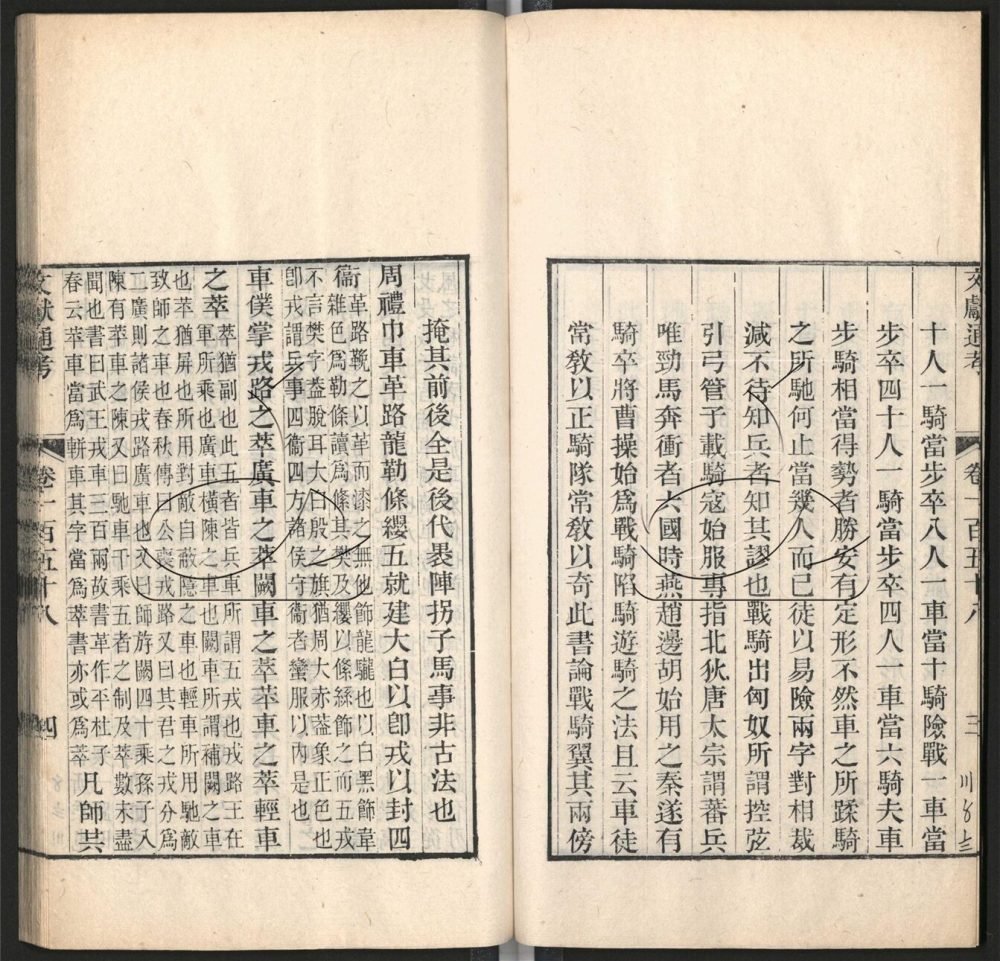 文獻通考
卷一百五十八
三
十人一騎當步卒八人一車當十騎險戰一車當
步卒四十人一騎當步卒四人一車當六騎夫車
步騎相當得勢者勝安有定形不然車之所蹂騎
之所馳何止當幾人而已徒以易險兩字對相裁
減不待知兵者知其謬也戰騎出匈奴所謂控弦
引弓管子載騎寇始服專指北狄唐太宗謂蕃兵
唯勁馬奔衝者六國時燕趙邊胡始用之秦遂有
騎卒將曹操始爲戰騎陷騎遊騎之法且云車徒
常敎以正騎隊常敎以奇此書論戰騎翼其兩傍
掩其前後全是後代褁陣拐子馬事非古法也
周禮巾車革路龍勒條纓五就建大白以卽戎以封四
衞革路鞔之以革而漆之無他飾龍駹也以白黑飾韋
雜色爲勒條讀爲絛其樊及纓以絛絲飾之而五戎
不言樊字蓋脫耳大白殷之旗猶周大赤蓋象正色也
卽戎謂兵事四衞四方諸侯守衞者蠻服以內是也
車僕掌戎路之萃廣車之萃闕車之萃苹車之萃輕車
之萃萃猶副也此五者皆兵車所謂五戎也戎路王在
軍所乘也廣車橫陳之車也闕車所謂補闕之車
也苹猶屏也所用對敵自蔽隱之車也輕車所用馳敵
致師之車也春秋傳曰公喪戎路又曰其君之戎分爲
二廣則諸侯戎路廣車也又曰師斿闕四十乘孫子八
陳有苹車之陳又曰馳車千乘五者之制及萃數未盡
聞也書曰武王戎車三百兩故書苹作平杜子
春云苹車當爲軿車其字當爲萃書亦或爲萃凡師共
文獻通考
卷一百五十八
四